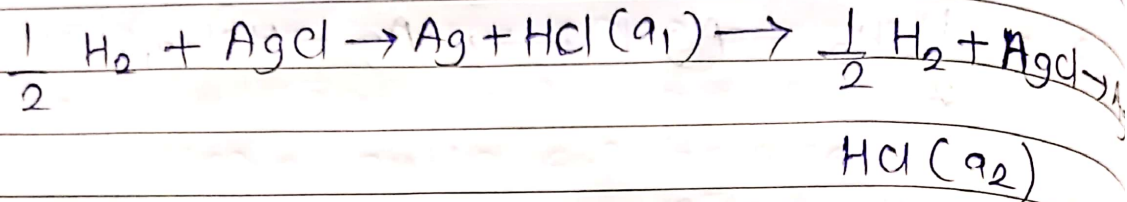 1/2 H₂ + AgCl → Ag + HCl (a₁) → 1/2 H₂ + AgCl →
HCl (a₂)